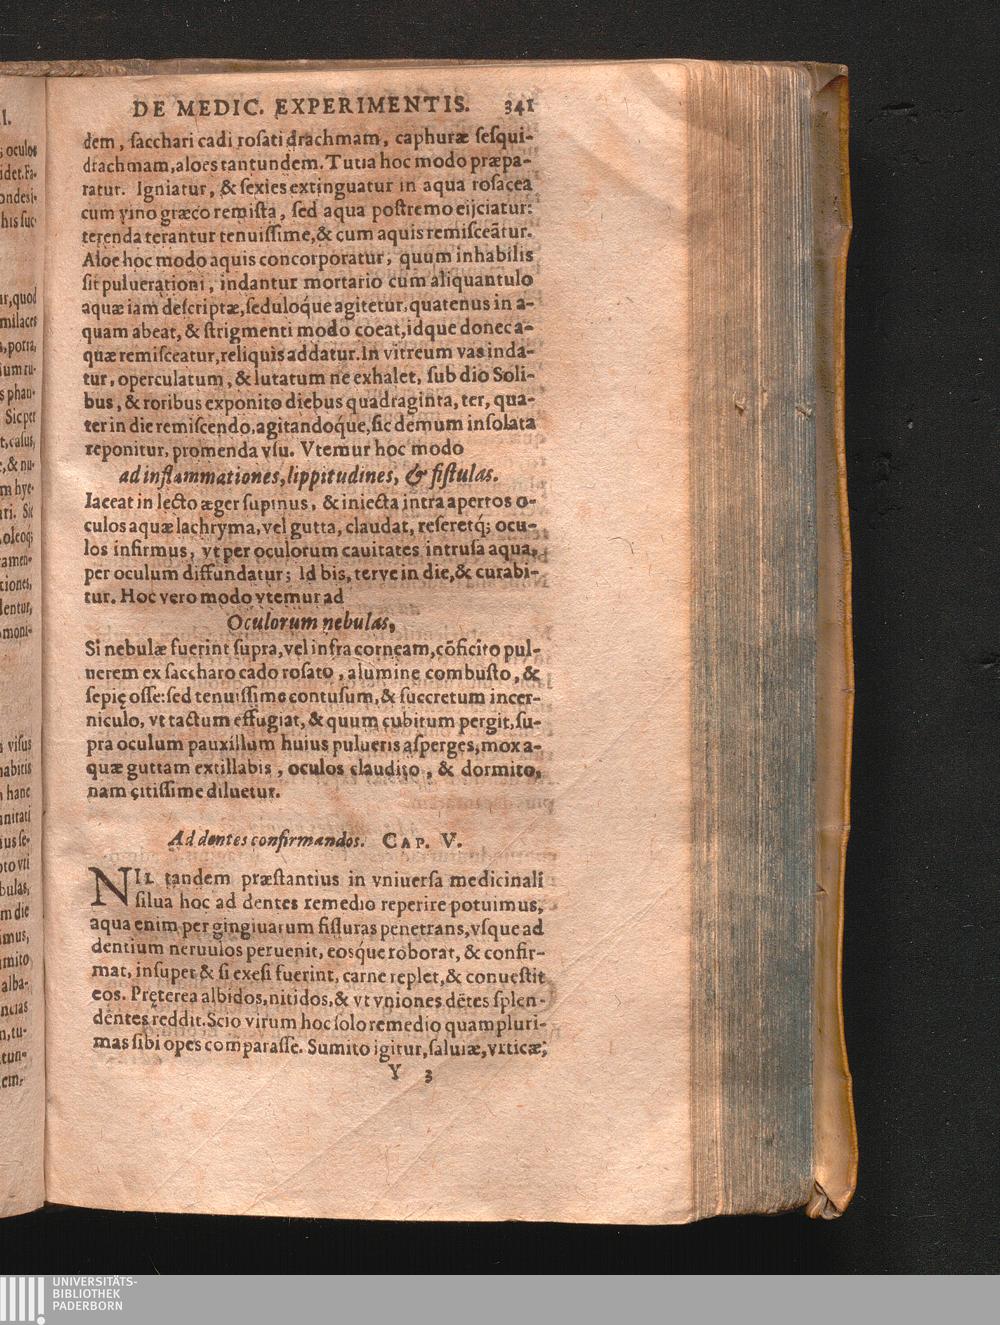 DE MEDIC. EXPERIMENTIS. 341
dem, sacchari cadi rosati drachmam, caphuræ sesqui-
drachmam, aloes tantundem. Tutia hoc modo præpa-
ratur. Igniatur, & sexies extinguatur in aqua rosacea
cum vino græco remista, sed aqua postremo eijciatur:
terenda terantur tenuissime, & cum aquis remisceātur.
Aloe hoc modo aquis concorporatur, quum inhabilis
sit puluerationi, indantur mortario cum aliquantulo
aquæ iam descriptæ, seduloque agitetur, quatenus in a-
quam abeat, & strigmenti modo coeat, idque donec a-
quæ remisceatur, reliquis addatur. In vitreum vas inda-
tur, operculatum, & lutatum ne exhalet, sub dio Soli-
bus, & roribus exponito diebus quadraginta, ter, qua-
ter in die remiscendo, agitandoque, sic demum insolata
reponitur, promenda vsu. Vtemur hoc modo
ad inflammationes, lippitudines, & fistulas.
Iaceat in lecto æger supinus, & iniecta intra apertos o-
culos aquæ lachryma, vel gutta, claudat, referetq; ocu-
los infirmus, vt per oculorum cauitates intrusa aqua,
per oculum diffundatur; Id bis, terve in die, & curabi-
tur. Hoc vero modo vtemur ad
Oculorum nebulas,
Si nebulæ fuerint supra, vel infra corneam, cōficito pul-
uerem ex saccharo cado rosato, alumine combusto, &
sepię osse: sed tenuissime contusum, & succretum incer-
niculo, vt tactum effugiat, & quum cubitum pergit, su-
pra oculum pauxillum huius pulueris asperges, mox a-
quæ guttam extillabis, oculos claudito, & dormito,
nam citissime diluetur.
Ad dentes confirmandos. CAP. V.
NIL tandem præstantius in vniuersa medicinali
silua hoc ad dentes remedio reperire potuimus,
aqua enim per gingiuarum fissuras penetrans, vsque ad
dentium neruulos peruenit, eosque roborat, & confir-
mat, insuper & si exesi fuerint, carne replet, & conuestit
eos. Pręterea albidos, nitidos, & vt vniones dētes splen-
dentes reddit. Scio virum hoc solo remedio quam pluri-
mas sibi opes comparasse. Sumito igitur, saluiæ, vrticæ,
Y 3
UNIVERSITÄTS-
BIBLIOTHEK
PADERBORN